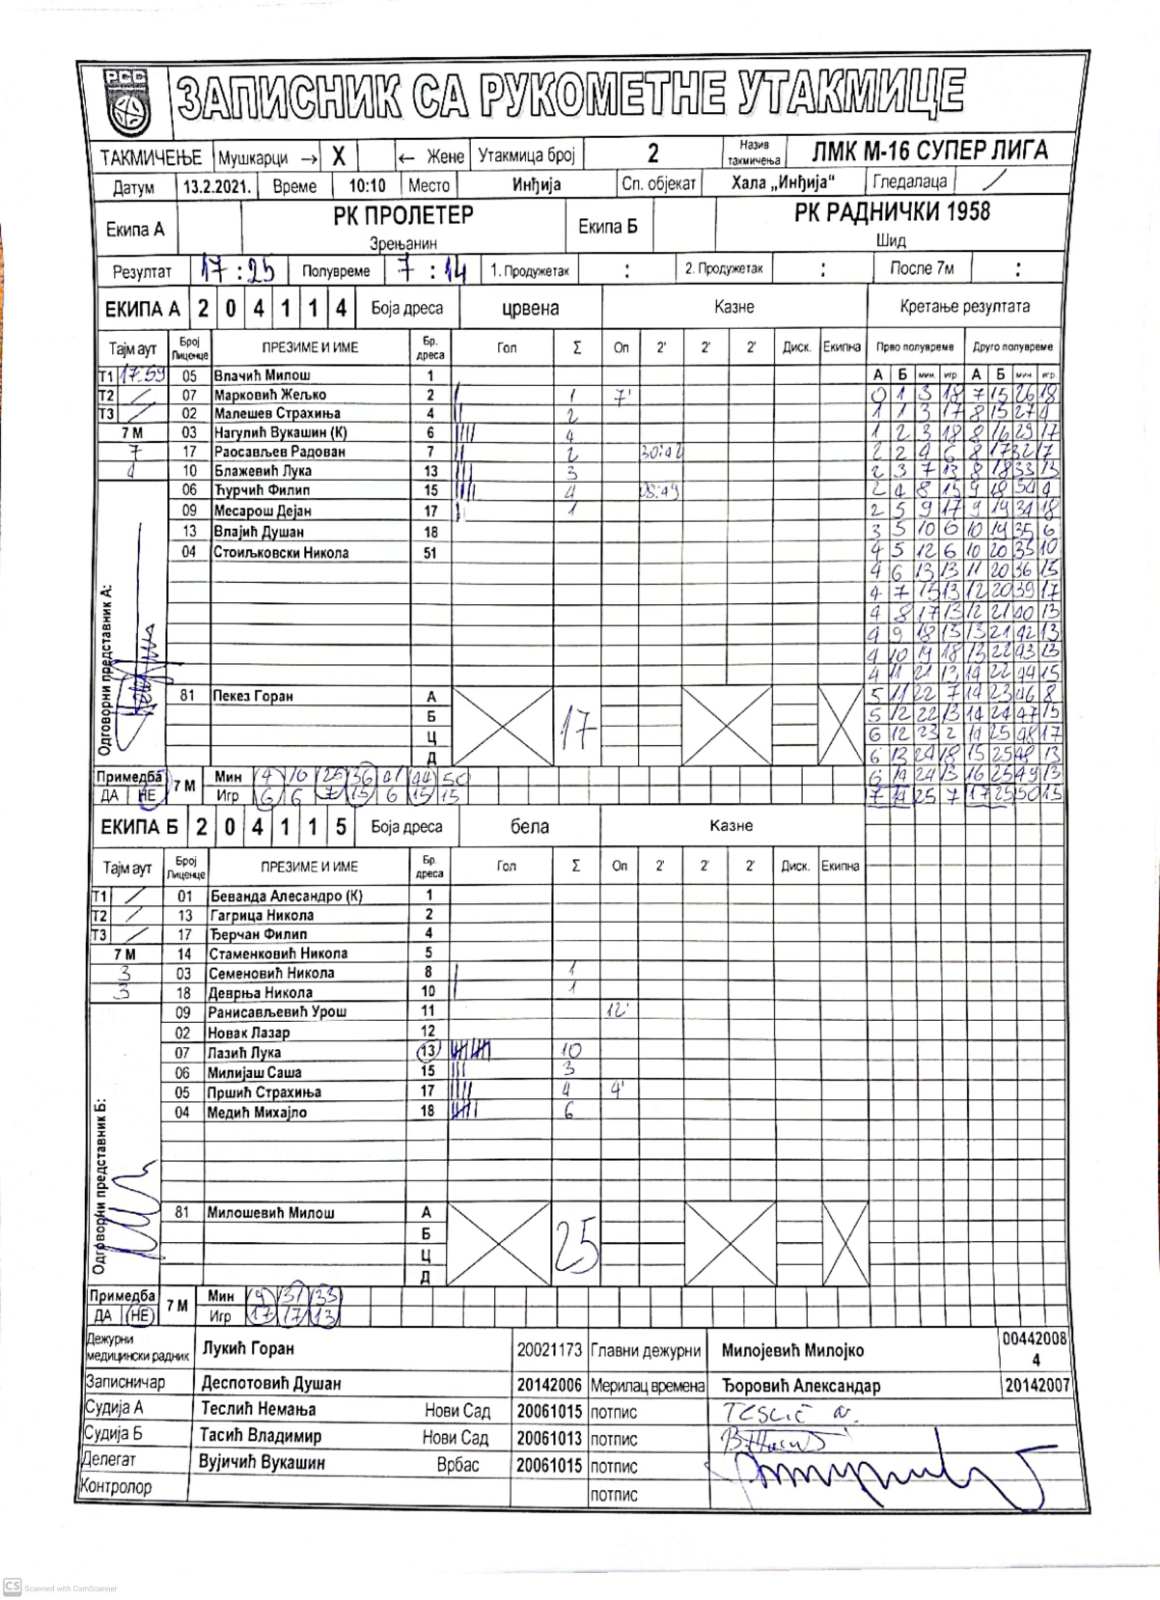 РСС
ЗАПИСНИК СА РУКОМЕТНЕ УТАКМИЦЕ
ТАКМИЧЕЊЕ Мушкарци → X ← Жене Утакмица број 2 Назив такмичења ЛМК М-16 СУПЕР ЛИГА
Датум 13.2.2021. Време 10:10 Место Инђија Сп. објекат Хала „Инђија“ Гледалаца /
Екипа А РК ПРОЛЕТЕР Зрењанин Екипа Б РК РАДНИЧКИ 1958 Шид
Резултат 17 : 25 Полувреме 7 : 14 1. Продужетак : 2. Продужетак : После 7м :
ЕКИПА А 2 0 4 1 1 4 Боја дреса црвена Казне Кретање резултата
Тајм аут Број Лиценце ПРЕЗИМЕ И ИМЕ Бр. дреса Гол Σ Оп 2' 2' 2' Диск. Екипна Прво полувреме Друго полувреме
А Б мин. игр А Б мин. игр.
Т1 17:59 05 Влачић Милош 1
Т2 / 07 Марковић Жељко 2 1 7' 0 1 3 18 7 15 26 18
Т3 / 02 Малешев Страхиња 4 2 1 1 3 17 8 15 27 4
7 М 03 Нагулић Вукашин (К) 6 4 1 2 3 18 8 16 29 17
7 17 Раосављев Радован 7 2 30:42 2 2 4 6 8 17 32 17
4 10 Блажевић Лука 13 3 2 3 7 13 8 18 33 13
06 Ћурчић Филип 15 4 2 4 8 15 9 18 34 4
09 Месарош Дејан 17 1 2 5 9 17 9 19 34 18
13 Влајић Душан 18 3 5 10 6 10 19 35 6
04 Стоиљковски Никола 51 4 5 12 6 10 20 35 10
4 6 13 13 11 20 36 15
4 7 15 13 12 20 39 17
4 8 17 13 12 21 40 13
4 9 18 13 13 21 42 13
4 10 19 18 13 22 43 13
4 11 21 13 14 22 44 15
Одговорни представник А:
81 Пекез Горан А 5 11 22 7 14 23 46 8
Б 5 12 22 13 14 24 47 15
Ц 17 6 12 23 2 14 25 48 17
Д 6 13 24 18 15 25 48 13
Примедба 7 М Мин 4 10 25 36 41 44 50 6 14 24 13 16 25 49 13
ДА НЕ Игр 6 6 7 15 6 15 15 7 14 25 7 17 25 50 15
ЕКИПА Б 2 0 4 1 1 5 Боја дреса бела Казне
Тајм аут Број Лиценце ПРЕЗИМЕ И ИМЕ Бр. дреса Гол Σ Оп 2' 2' 2' Диск. Екипна
Т1 / 01 Беванда Алесандро (К) 1
Т2 / 13 Гагрица Никола 2
Т3 / 17 Ђерчан Филип 4
7 М 14 Стаменковић Никола 5
3 03 Семеновић Никола 8 1
3 18 Деврња Никола 10 1
09 Ранисављевић Урош 11 12'
02 Новак Лазар 12
07 Лазић Лука 13 10
06 Милијаш Саша 15 3
05 Пршић Страхиња 17 4 4'
04 Медић Михајло 18 6
Одговорни представник Б:
81 Милошевић Милош А
Б
Ц 25
Д
Примедба 7 М Мин 9 31 33
ДА НЕ Игр 17 17 13
Дежурни медицински радник Лукић Горан 20021173 Главни дежурни Милојевић Милојко 00442008 4
Записничар Деспотовић Душан 20142006 Мерилац времена Ђоровић Александар 20142007
Судија А Теслић Немања Нови Сад 20061015 потпис
Судија Б Тасић Владимир Нови Сад 20061013 потпис
Делегат Вујичић Вукашин Врбас 20061015 потпис
Контролор потпис
CS Scanned with CamScanner